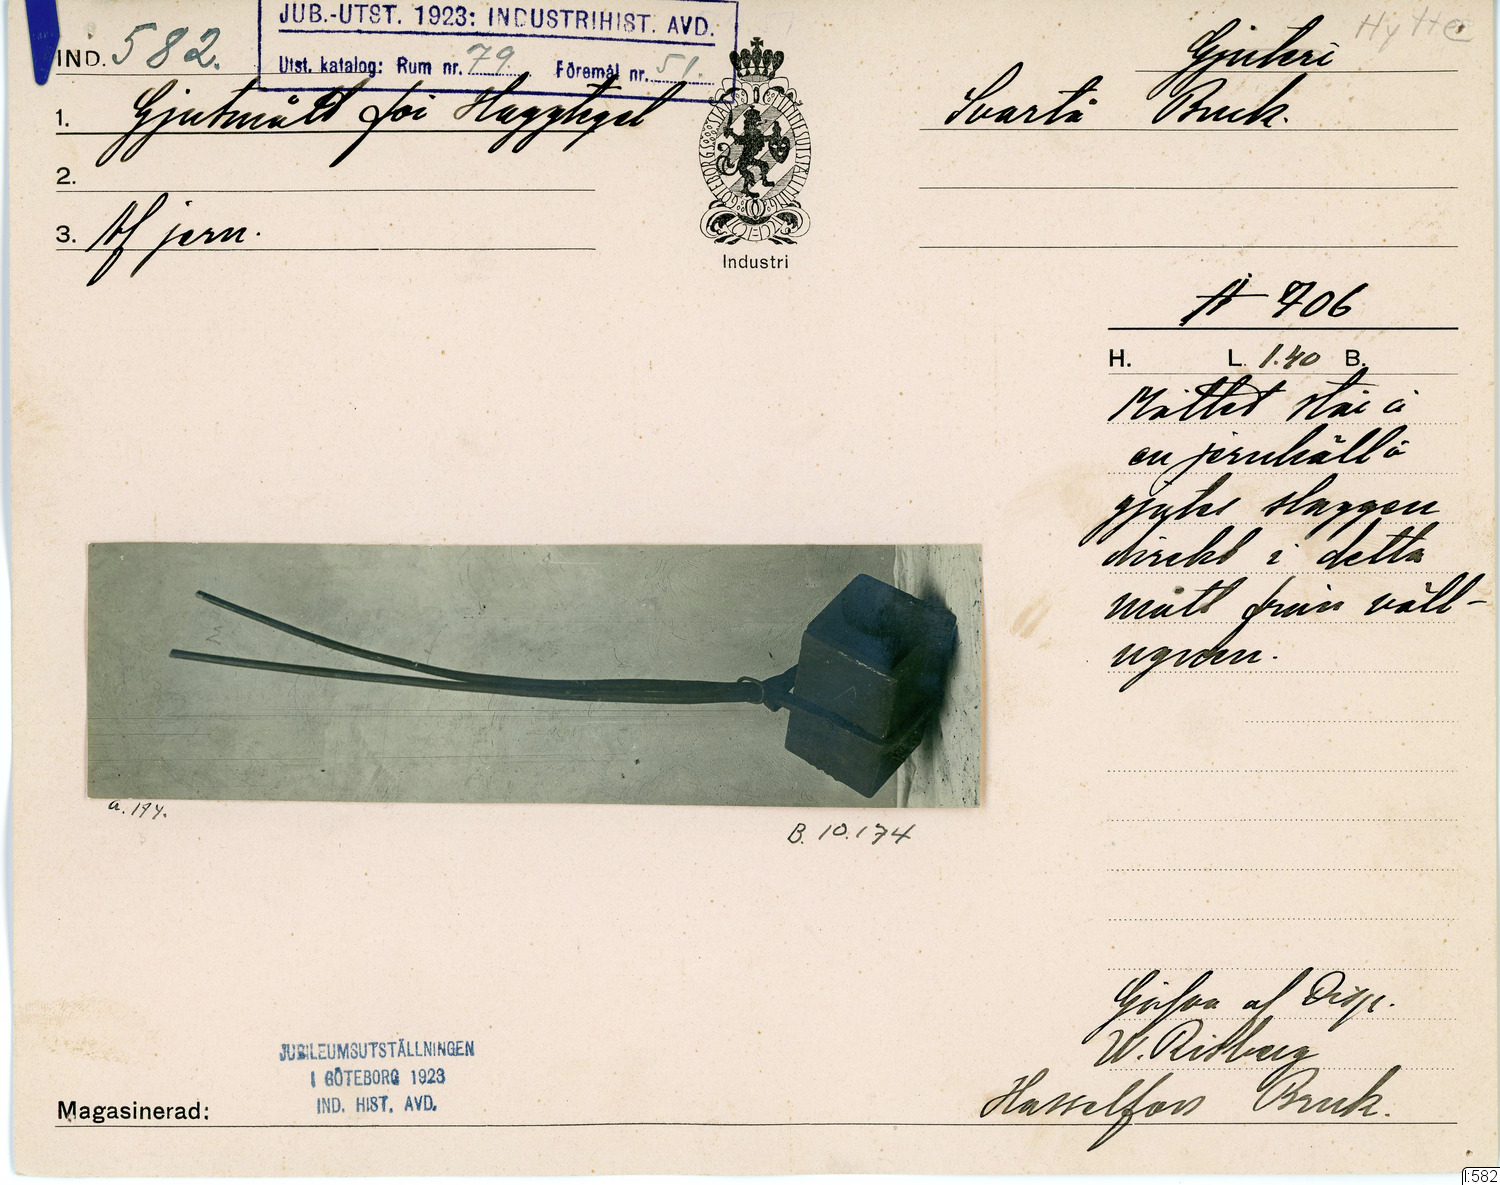 JUB.-UTST. 1923: INDUSTRIHIST. AVD.
IND. 582.
Utst. katalog: Rum nr. 79. Föremål nr. 51.
Hytte
Gjuteri
1. Gjutmått för slaggtegel
Svartå Bruk.
2.
3. Af jern.
GÖTEBORGS STADS MINNESUTSTÄLLNING
Industri
A 706
H. L. 1.40 B.
Måttet står å
en jernhäll å
gjutes slaggen
direkt i detta
mått från väll-
ugnen.
a. 194.
B. 10.174
Gåfva af Disp.
W. Risberg
Hasselfors Bruk.
JUBILEUMSUTSTÄLLNINGEN
I GÖTEBORG 1923
IND. HIST. AVD.
Magasinerad:
I:582